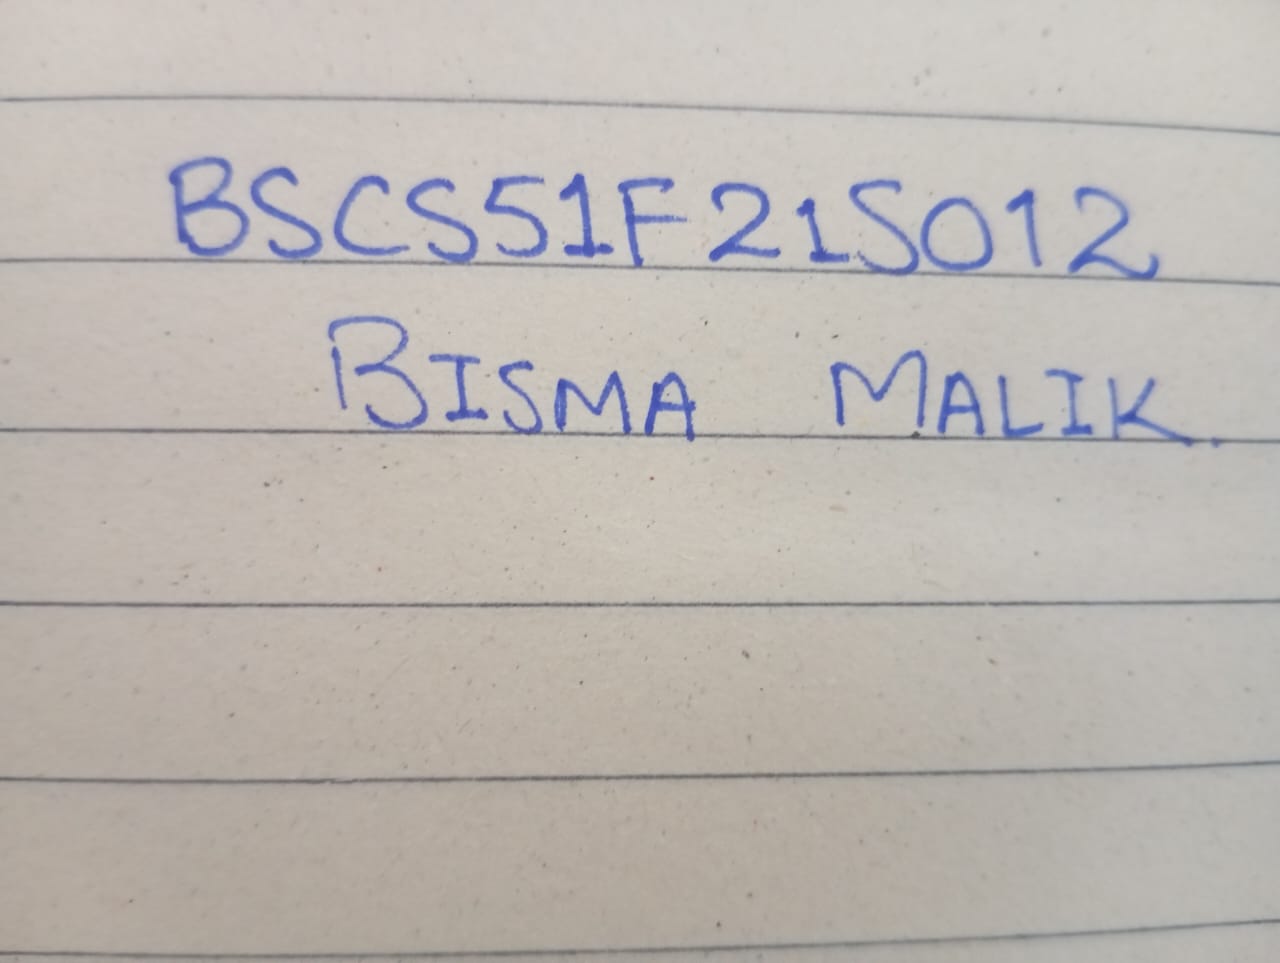 BSCS51F21S012
BISMA MALIK.